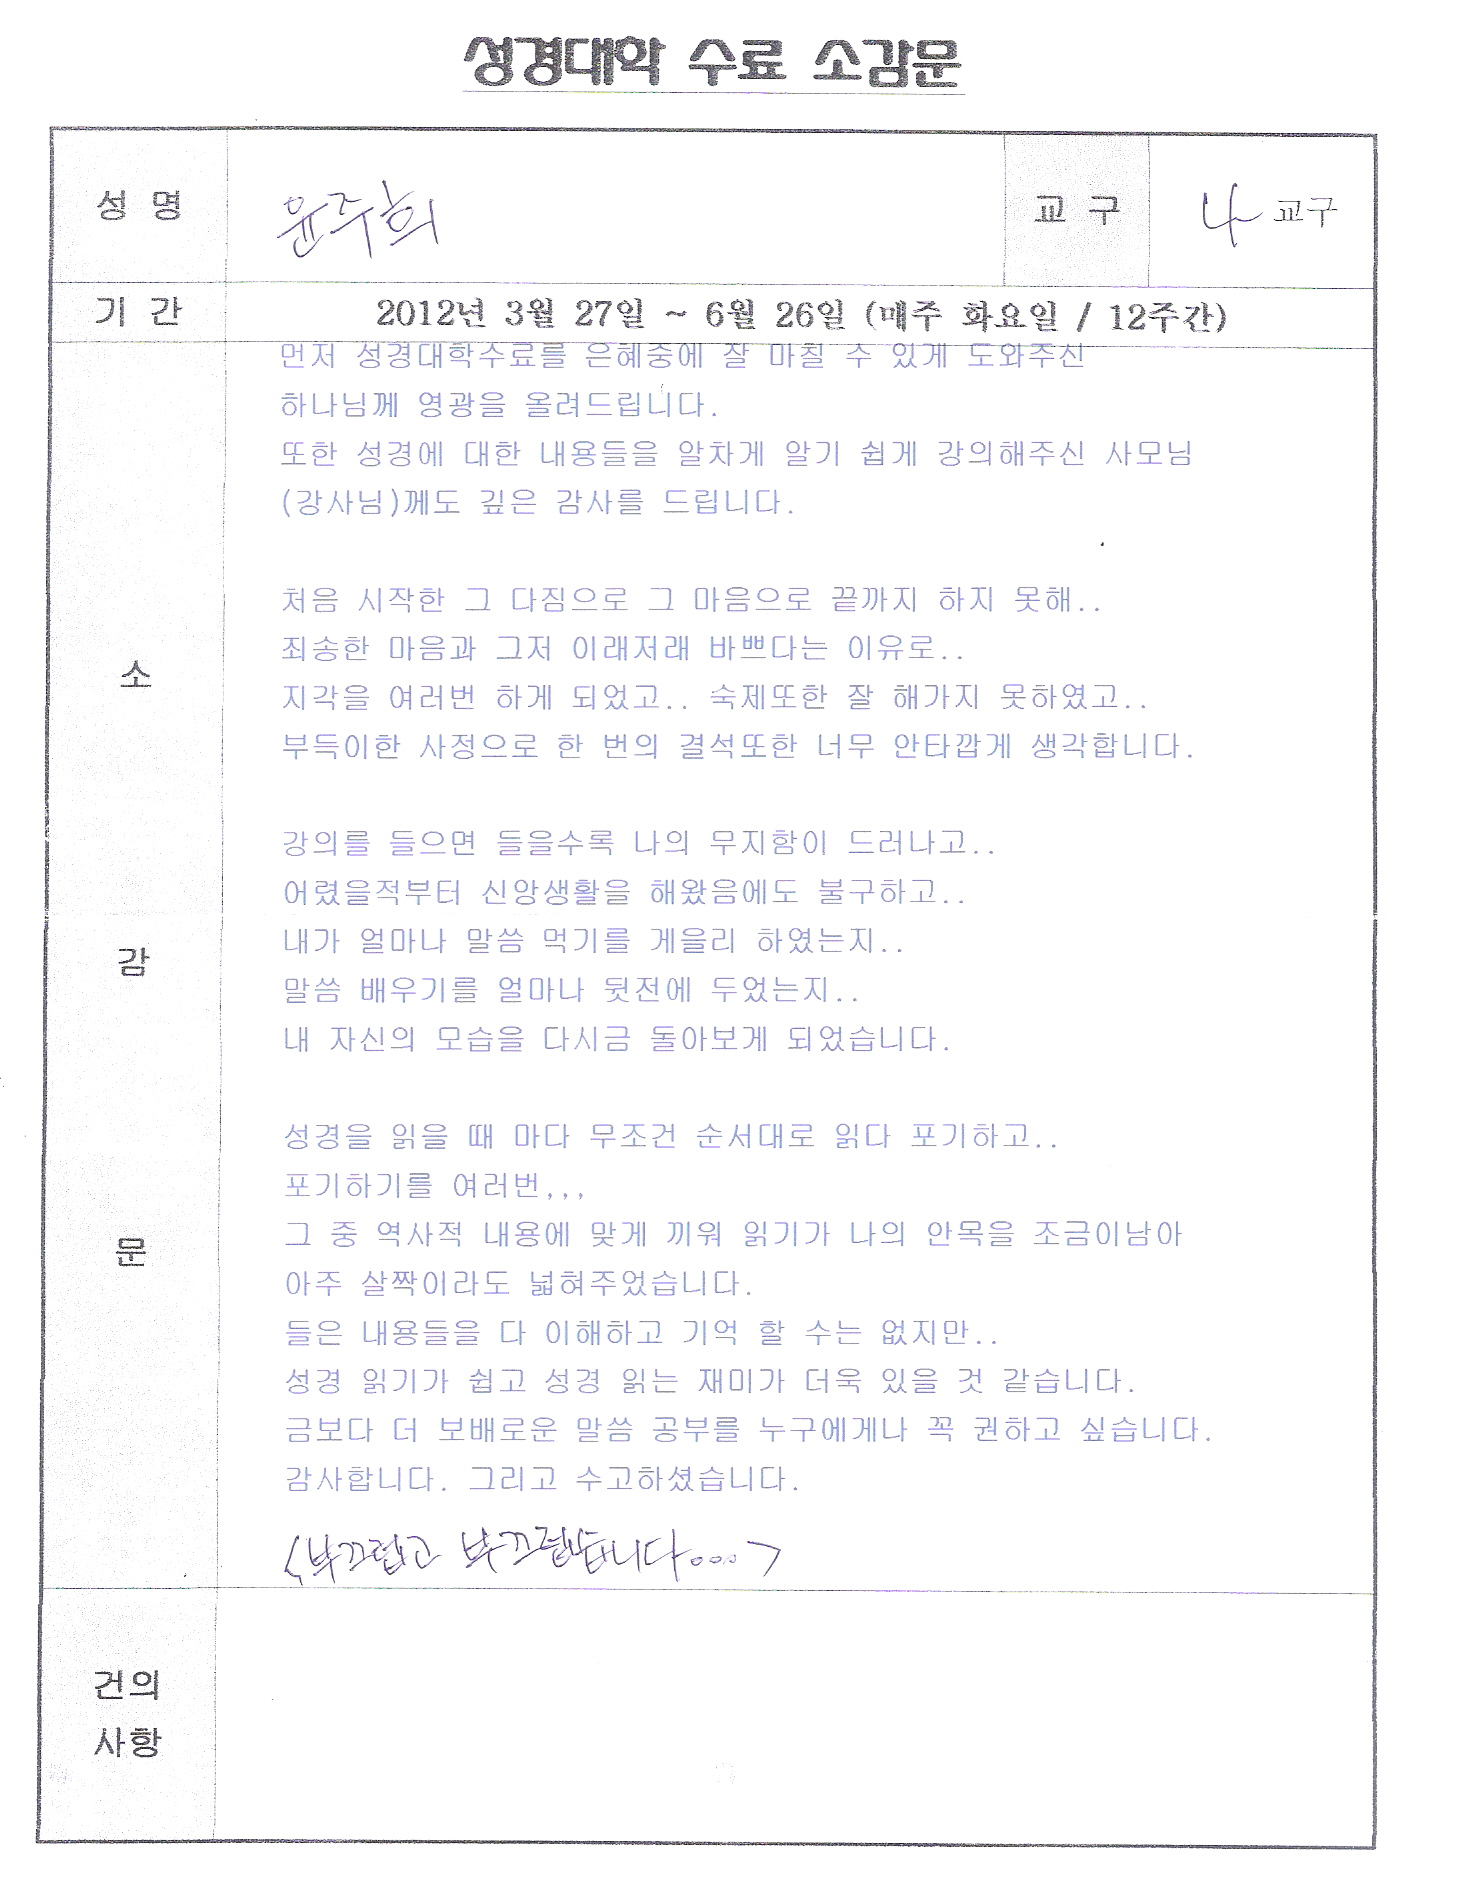 성경대학 수료 소감문
성 명 윤주희 교 구 나 교구
기 간 2012년 3월 27일 ~ 6월 26일 (매주 화요일 / 12주간)
먼저 성경대학수료를 은혜중에 잘 마칠 수 있게 도와주신
하나님께 영광을 올려드립니다.
또한 성경에 대한 내용들을 알차게 알기 쉽게 강의해주신 사모님
(강사님)께도 깊은 감사를 드립니다.
처음 시작한 그 다짐으로 그 마음으로 끝까지 하지 못해..
죄송한 마음과 그저 이래저래 바쁘다는 이유로..
소
지각을 여러번 하게 되었고.. 숙제또한 잘 해가지 못하였고..
부득이한 사정으로 한 번의 결석또한 너무 안타깝게 생각합니다.
강의를 들으면 들을수록 나의 무지함이 드러나고..
어렸을적부터 신앙생활을 해왔음에도 불구하고..
내가 얼마나 말씀 먹기를 게을리 하였는지..
감
말씀 배우기를 얼마나 뒷전에 두었는지..
내 자신의 모습을 다시금 돌아보게 되었습니다.
성경을 읽을 때 마다 무조건 순서대로 읽다 포기하고..
포기하기를 여러번,,,
그 중 역사적 내용에 맞게 끼워 읽기가 나의 안목을 조금이남아
문
아주 살짝이라도 넓혀주었습니다.
들은 내용들을 다 이해하고 기억 할 수는 없지만..
성경 읽기가 쉽고 성경 읽는 재미가 더욱 있을 것 같습니다.
금보다 더 보배로운 말씀 공부를 누구에게나 꼭 권하고 싶습니다.
감사합니다. 그리고 수고하셨습니다.
<부끄럽고 부끄럽습니다...>
건의
사항